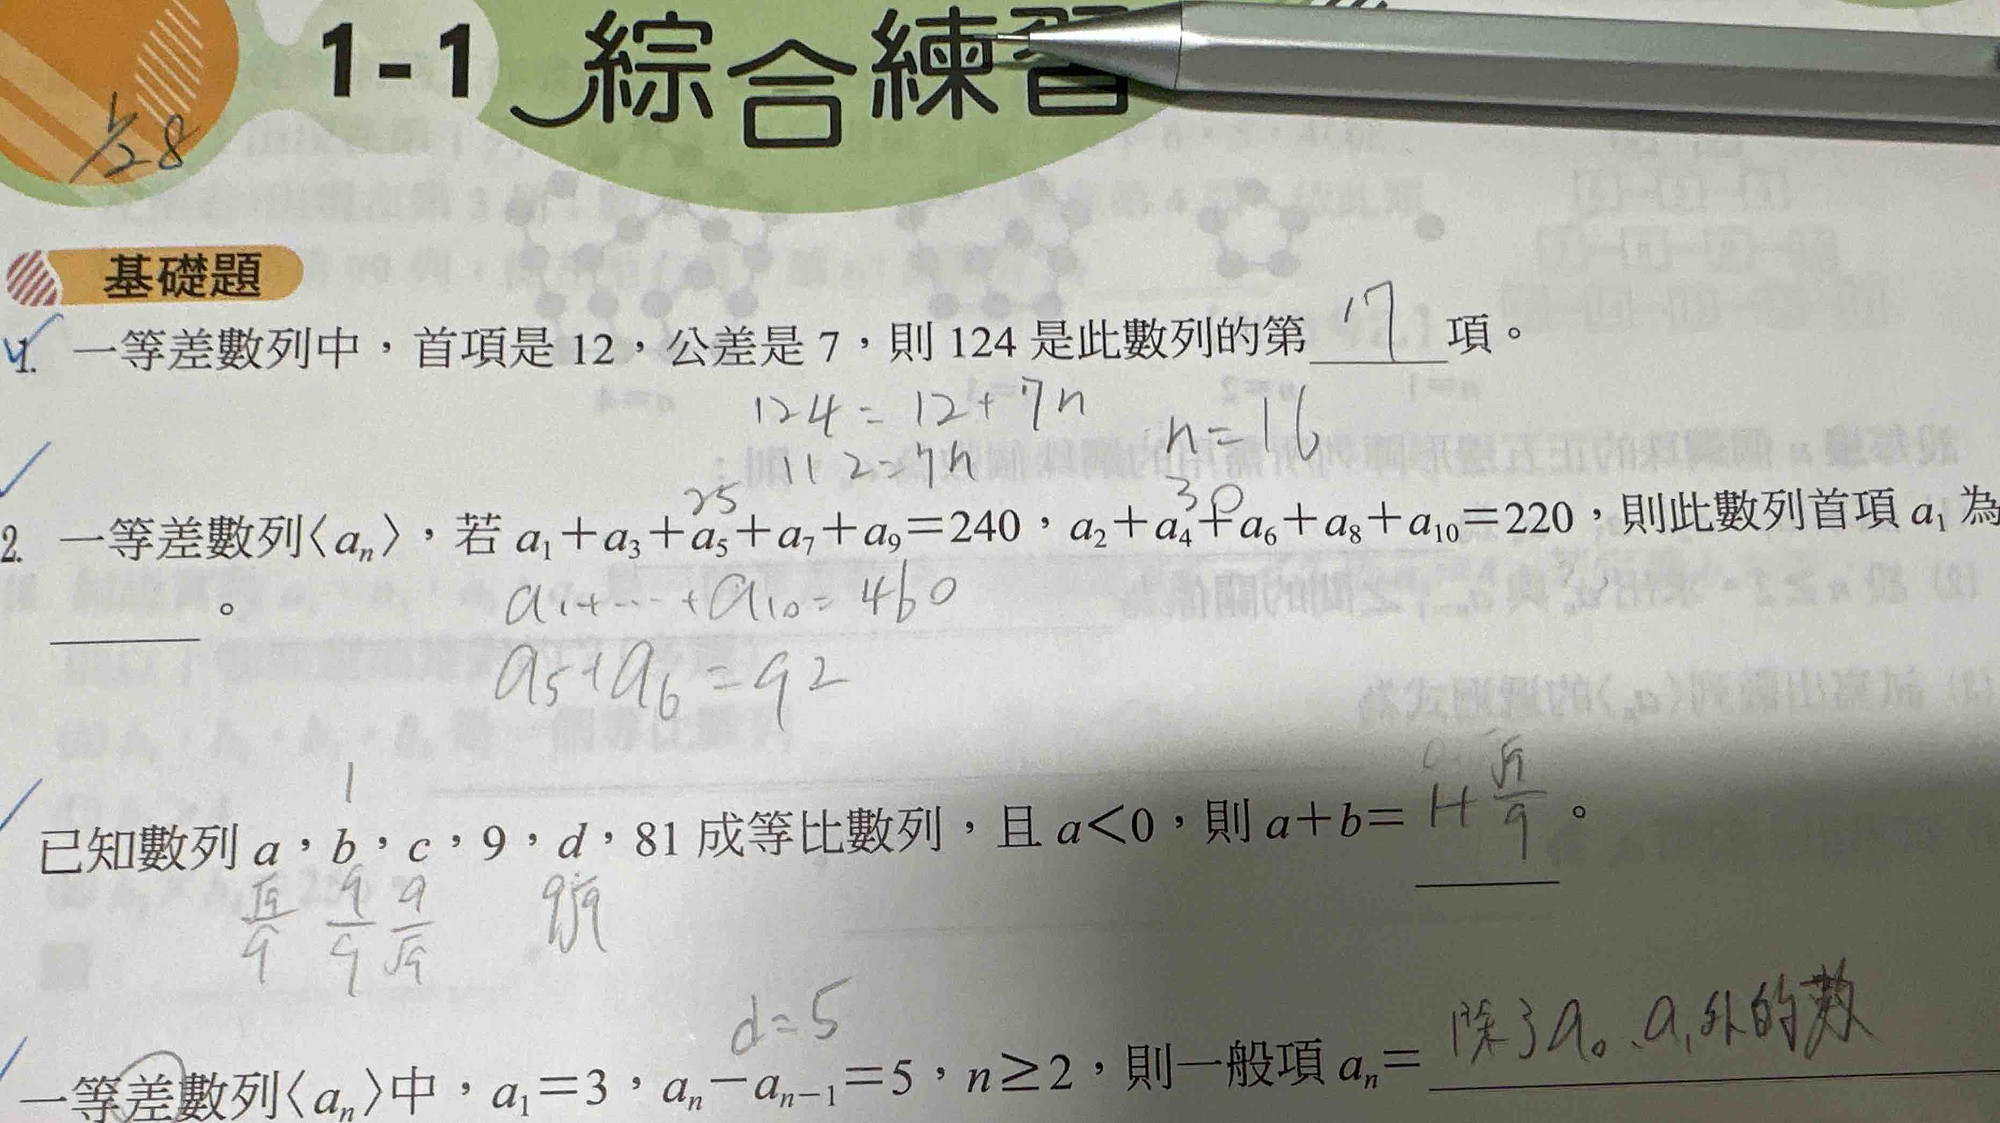 1-1 綜合練習
1/28
基礎題
1. 一等差數列中，首項是 12，公差是 7，則 124 是此數列的第 17 項。
124 = 12 + 7n
n = 16
112 = 7n
25
30
2. 一等差數列⟨aₙ⟩，若 a₁＋a₃＋a₅＋a₇＋a₉＝240，a₂＋a₄＋a₆＋a₈＋a₁₀＝220，則此數列首項 a₁ 為
。
a₁+…+a₁₀=460
a₅+a₆=92
1
已知數列 a，b，c，9，d，81 成等比數列，且 a＜0，則 a＋b＝ 1+√9/9 。
√9/9 9/9 9/√9 9√9
d=5
一等差數列⟨aₙ⟩中，a₁＝3，aₙ－aₙ₋₁＝5，n≥2，則一般項 aₙ＝ 除了a₀、a₁外的數